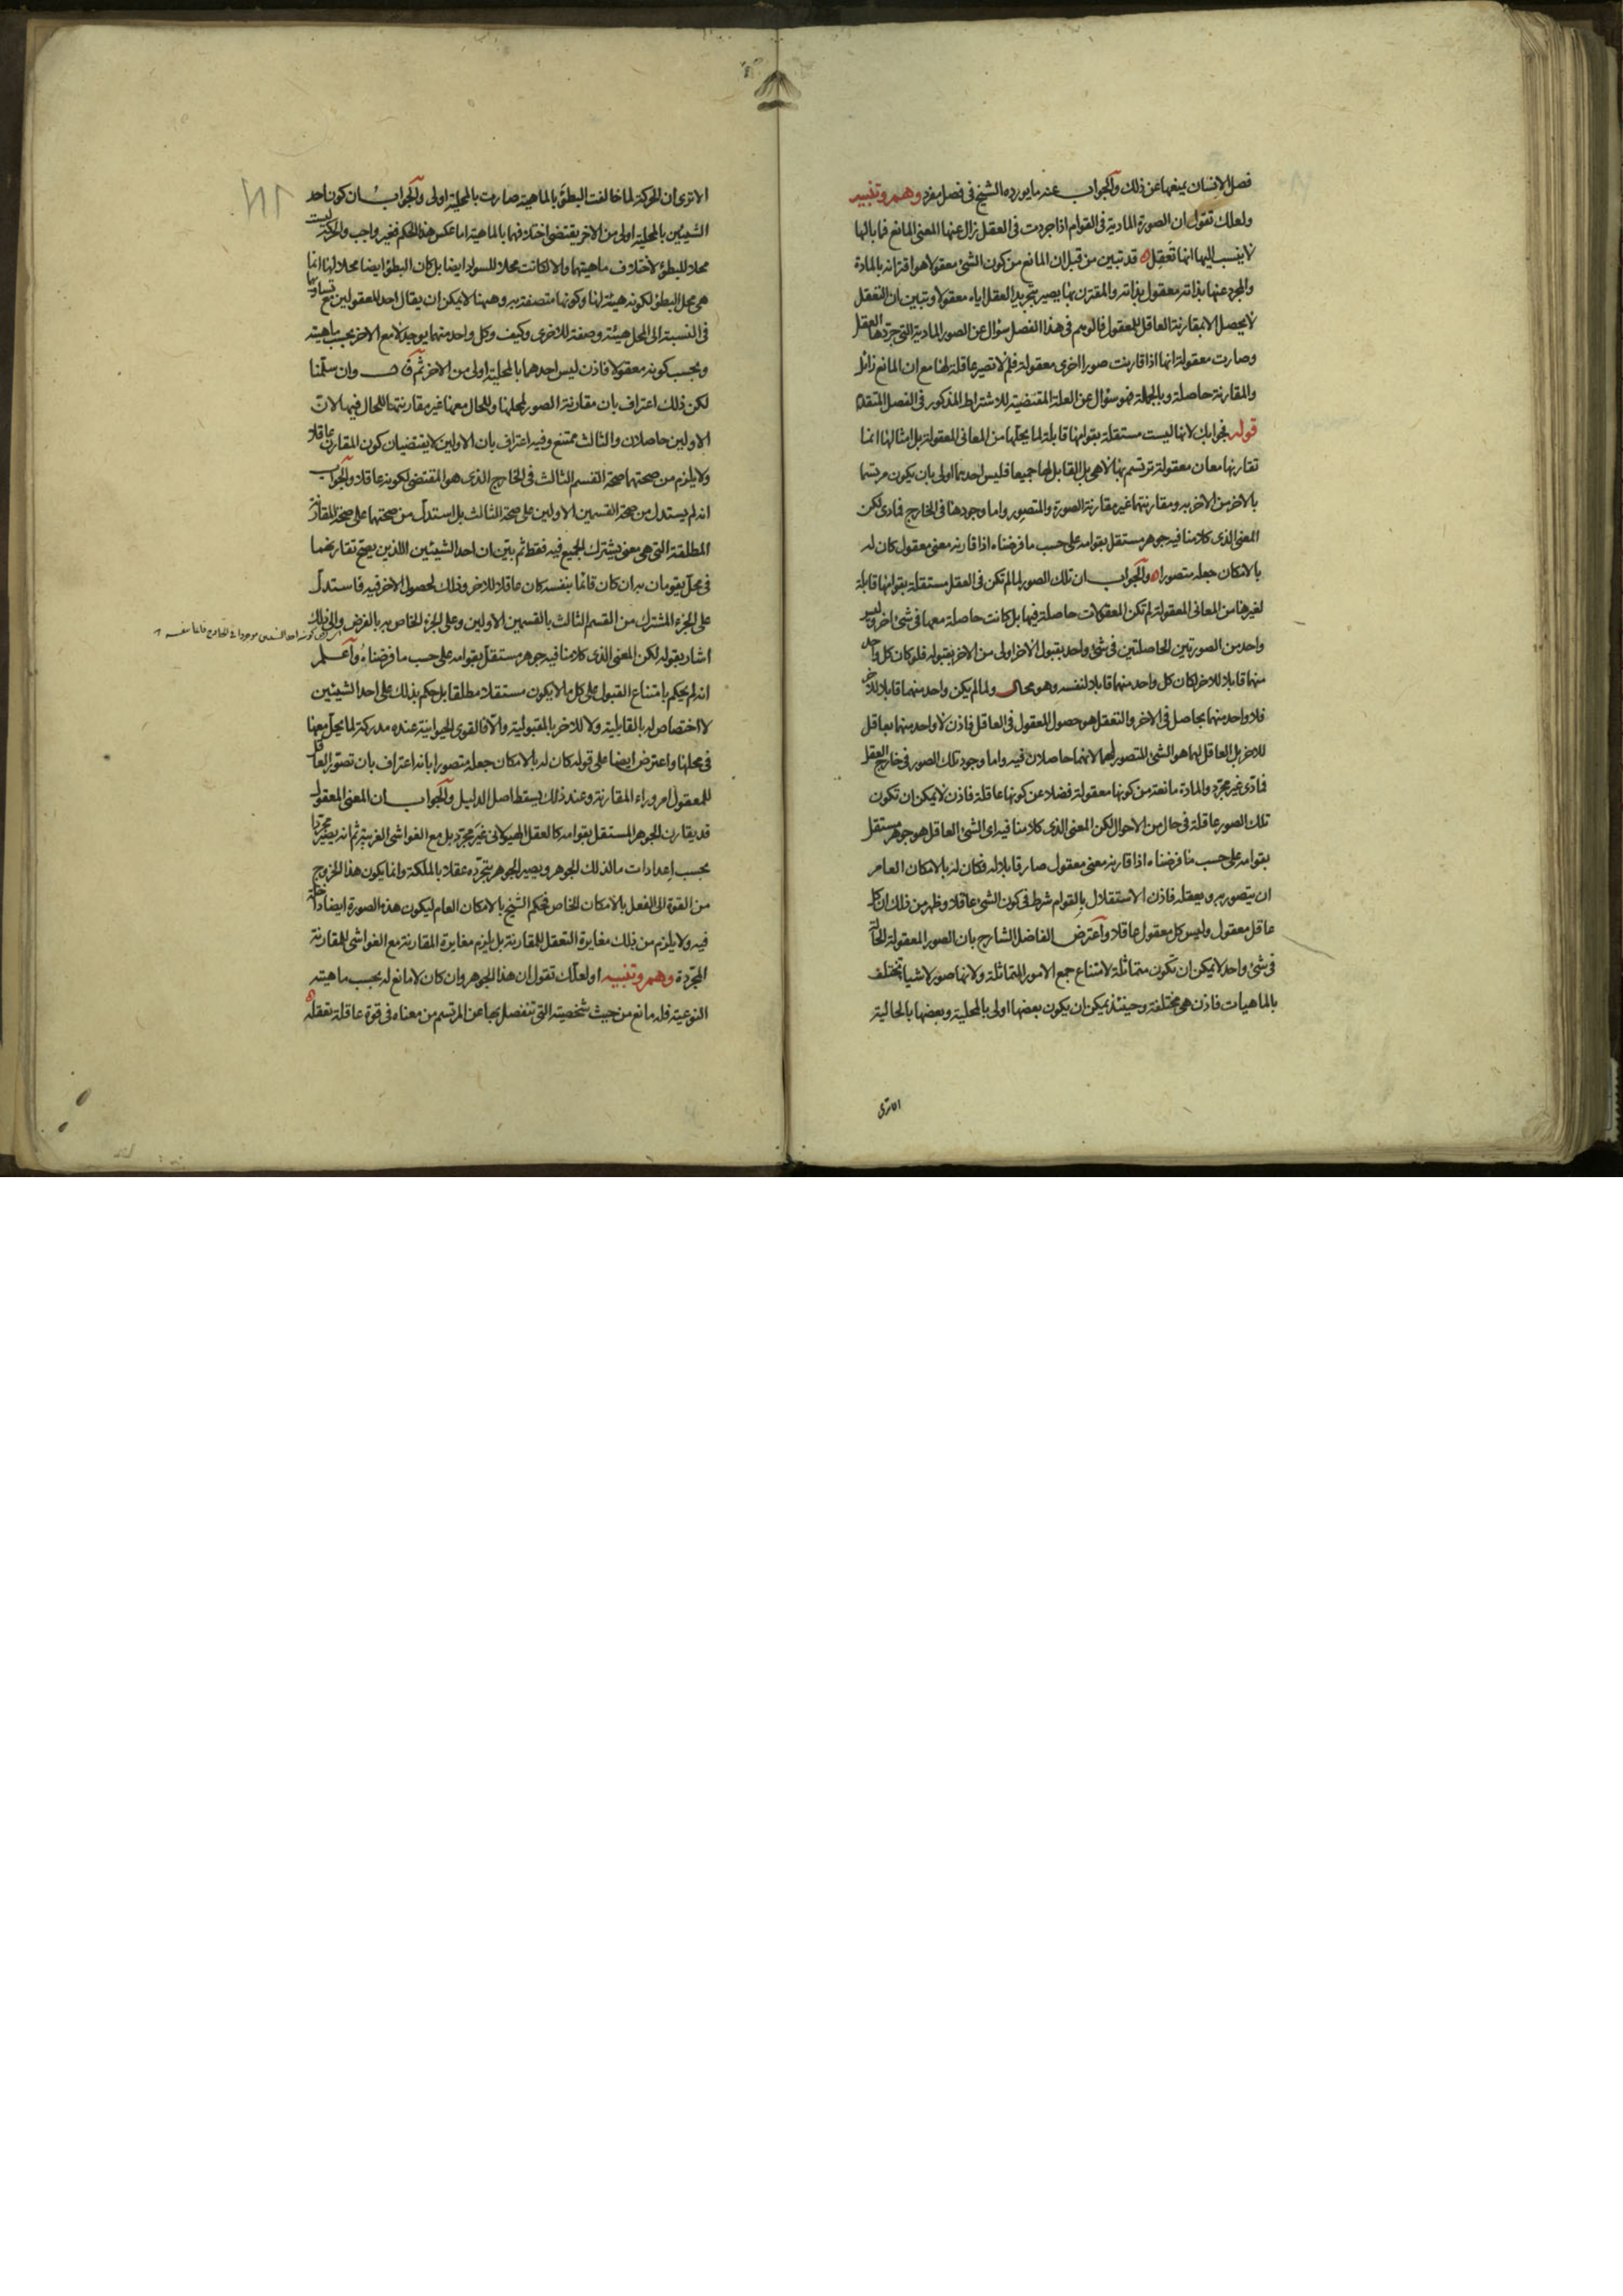 فصل الانسان يمنعها عن ذلك والجواب عنه ما يورده الشيخ فى فصل مفرد وهم وتنبيه
ولعلك تقول ان الصورة المادية فى القوام اذا جردت فى العقل زال عنها المعنى المانع فما بالها
لا ينسب اليها انها تعقل قد تبين من قبل ان المانع من كون الشئ معقولا هو اقترانه بالمادة
والمجرد عنها بذاته معقول بذاته والمقترن بها يصير بتجريد العقل اياه معقولا وتبين ان التعقل
لا يحصل الا بمقارنة العاقل للمعقول فالوهم فى هذا الفصل سؤال عن الصور المادية التى جردها العقل
وصارت معقولة انها اذا قارنت صورا اخرى معقولة فلم لا تصير عاقلة لها مع ان المانع زائل
والمقارنة حاصلة وبالجملة فهو سؤال عن العلة المقتضية للاشتراط المذكور فى الفصل المتقدم
قوله فجوابك لانها ليست مستقلة بقوامها قابلة لما يحلها من المعانى المعقولة بل امثالها انما
تقارنها معان معقولة ترتسم بها لا هى بل القابل لها جميعا فليس احدهما اولى بان يكون مرتسما
بالاخر من الاخر به ومقارنتهما غير مقارنة الصورة والمتصور واما وجودها فى الخارج فمادى لكن
المعنى الذى كلامنا فيه جوهر مستقل بقوامه على حسب ما فرضناه اذا قارنه معنى معقول كان له
بالامكان جعله متصورا والجواب ان تلك الصور لما لم تكن فى العقل مستقلة بقوامها قابلة
لغيرها من المعانى المعقولة لم تكن المعقولات حاصلة فيها بل كانت حاصلة معها فى شئ اخر وليس
واحد من الصورتين الحاصلتين فى شئ واحد بقبول الاخر اولى من الاخر بقبوله فلو كان كل واحد
منهما قابلا للاخر لكان كل واحد منهما قابلا لنفسه وهو محال ولما لم يكن واحد منهما قابلا للاخر
فلا واحد منهما بحاصل فى الاخر والتعقل هو حصول المعقول فى العاقل فاذن لا واحد منهما بعاقل
للاخر بل العاقل لهما هو الشئ المتصور لهما لانهما حاصلان فيه واما وجود تلك الصور فى خارج العقل
فمادى غير مجرد والمادة مانعة من كونها معقولة فضلا عن كونها عاقلة فاذن لا يمكن ان تكون
تلك الصور عاقلة فى حال من الاحوال لكن المعنى الذى كلامنا فيه اى الشئ العاقل هو جوهر مستقل
بقوامه على حسب ما فرضناه اذا قارنه معنى معقول صار قابلا له فكان له بالامكان العام
ان يتصور به ويعقله فاذن الاستقلال بالقوام شرط فى كون الشئ عاقلا وظهر من ذلك ان كل
عاقل معقول وليس كل معقول عاقلا واعترض الفاضل الشارح بان الصور المعقولة الحالة
فى شئ واحد لا يمكن ان تكون متماثلة لامتناع جمع الامور المتماثلة ولانها صور لاشيا تختلف
بالماهيات فاذن هى مختلفة وحينئذ يمكن ان يكون بعضها اولى بالمحلية وبعضها بالحالية
الاترى
الاترى ان الحركة لما خالفت البطؤ بالماهية صارت بالمحلية اولى والجواب ان كون احد
الشيئين بالمحلية اولى من الاخر يقتضى اختلافهما بالماهية اما عكس هذا الحكم فغير واجب والحركة ليست
محلا للبطؤ لاختلاف ماهيتهما والا لكانت محلا للسواد ايضا بل كان البطؤ ايضا محلا لها انما
هى محل البطؤ لكونه هيئة لها وكونها متصفة به وههنا لا يمكن ان يقال احد المعقولين مع تساويهما
فى النسبة الى المحل هيئة وصفة للاخرى وكيف وكل واحد منهما يوجد لا مع الاخر بحسب ماهيته
وبحسب كونه معقولا فاذن ليس احدهما بالمحلية اولى من الاخر ثم قال وان سلمنا
لكن ذلك اعتراف بان مقارنة الصور لمحلها وللحال معها غير مقارنتها للحال فيها لان
الاولين حاصلان والثالث ممتنع وفيه اعتراف بان الاولين لا يقتضيان كون المقارن عاقلا
ولا يلزم من صحتهما صحة القسم الثالث فى الخارج الذى هو المقتضى لكونه عاقلا والجواب
انه لم يستدل من صحة القسمين الاولين على صحة الثالث بل استدل من صحتهما على صحة المقارنة
المطلقة التى هى معنى يشترك الجميع فيه فقط ثم بين ان احد الشيئين اللذين يصح تقارنهما
فى محل يقومان به ان كان قائما بنفسه كان عاقلا للاخر وذلك لحصول الاخر فيه فاستدل
على الجزء المشترك من القسم الثالث بالقسمين الاولين وعلى الجزء الخاص به بالفرض والى ذلك
اشار بقوله لكن المعنى الذى كلامنا فيه جوهر مستقل بقوامه على حسب ما فرضناه واعلم
انه لم يحكم بامتناع القبول على كل ما لا يكون مستقلا مطلقا بل حكم بذلك على احد الشيئين
لا اختصاص له بالقابلية ولا للاخر بالمقبولية والا فالقوى الحيوانية عنده مدركة لما يحل معها
فى محلها واعترض ايضا على قوله كان له بالامكان جعله متصورا بانه اعتراف بان تصور العاقل
للمعقول امر وراء المقارنة وعند ذلك يسقط اصل الدليل والجواب ان المعنى المعقول
قد يقارن الجوهر المستقل بقوامه كالعقل الهيولانى غير مجرد بل مع الغواشى الغريبة ثم انه يصير مجردا
بحسب اعدادات ما لذلك الجوهر ويصير الجوهر بتجرده عقلا بالملكة وانما يكون هذا الخروج
من القوة الى الفعل بالامكان الخاص فحكم الشيخ بالامكان العام ليكون هذه الصورة ايضا داخلة
فيه ولا يلزم من ذلك مغايرة التعقل للمقارنة بل يلزم مغايرة المقارنة مع الغواشى للمقارنة
المجردة وهم وتنبيه او لعلك تقول ان هذا الجوهر وان كان لا مانع له بحسب ماهيته
النوعية فله مانع من حيث شخصيته التى تنفصل بها عن المرتسم من معناه فى قوة عاقلة تعقله